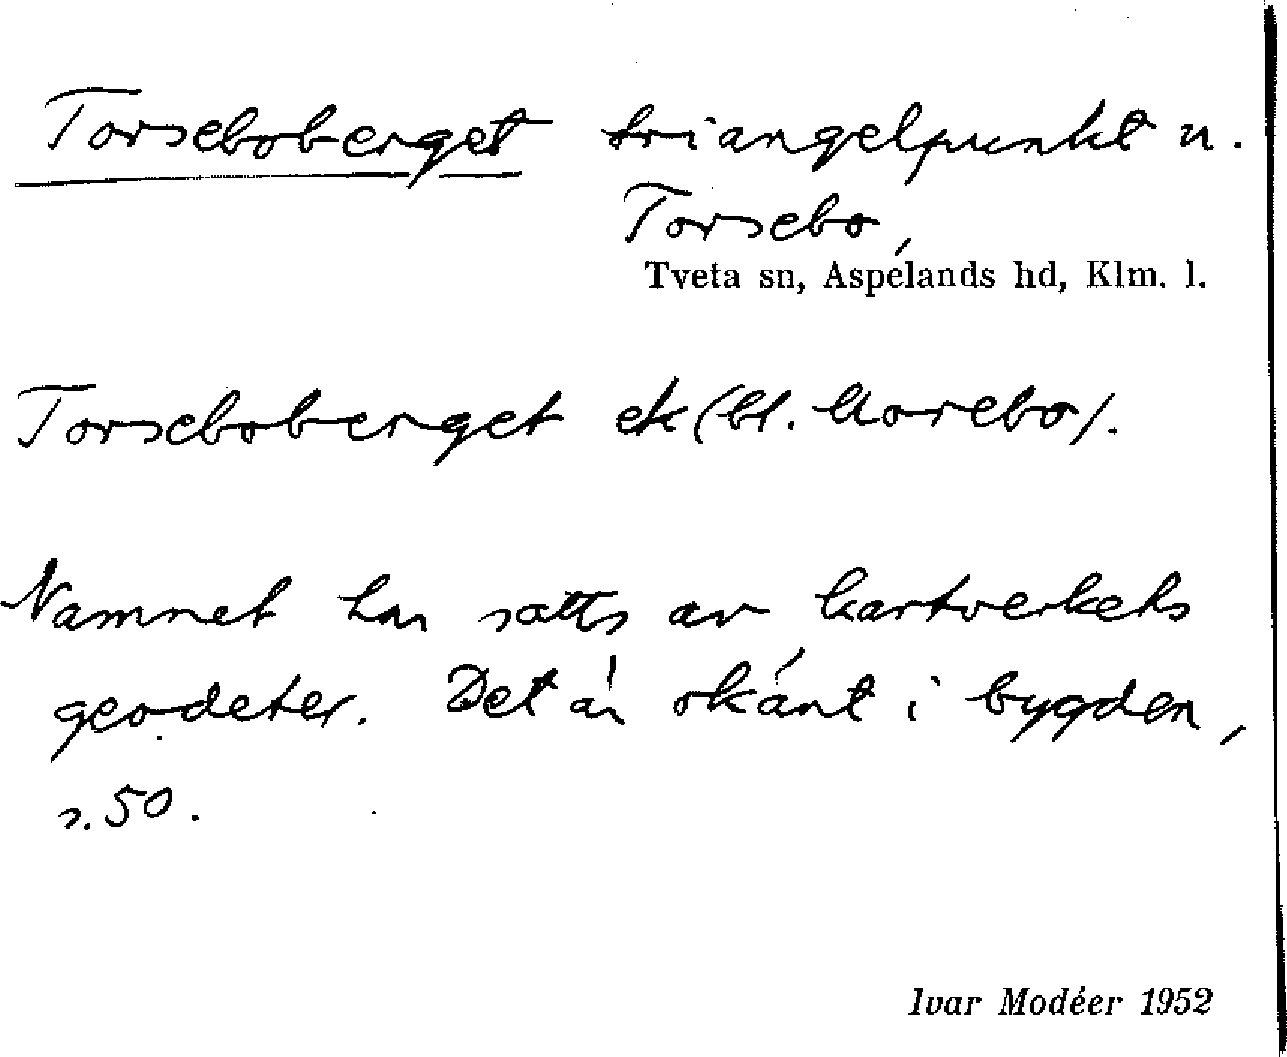 Torseboberget triangelpunkt n.
Torsebo,
Tveta sn, Aspelands hd, Klm. l.
Torseboberget ek (bl. Morebo).
Namnet har satts av kartverkets
geodeter. Det är okänt i bygden,
s. 50.
Ivar Modéer 1952